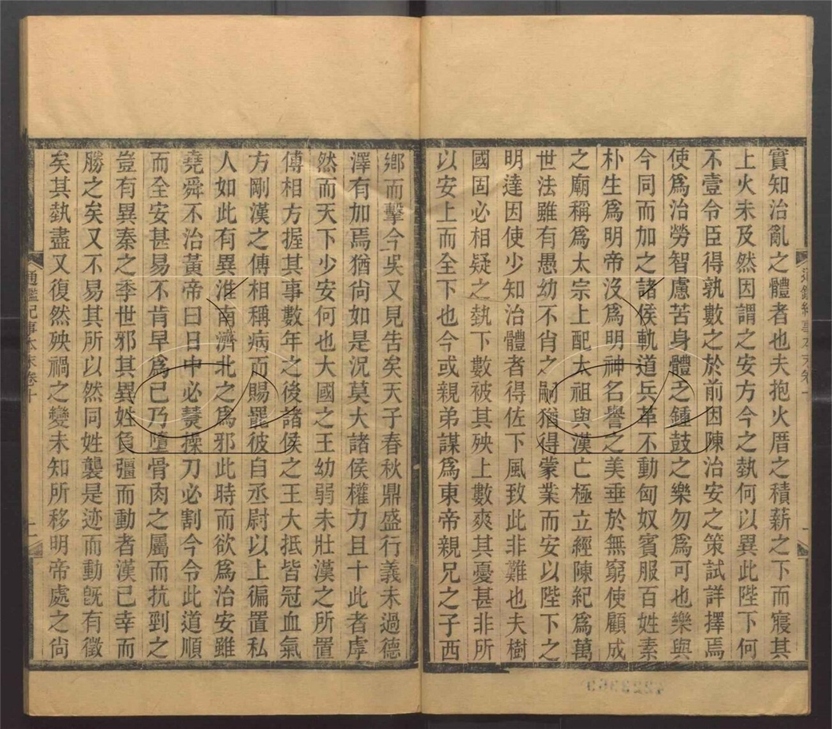 實知治亂之體者也夫抱火厝之積薪之下而寢其
上火未及然因謂之安方今之埶何以異此陛下何
不壹令臣得孰數之於前因陳治安之策試詳擇焉
使爲治勞智慮苦身體乏鍾鼓之樂勿爲可也樂與
今同而加之諸侯軌道兵革不動匈奴賓服百姓素
朴生爲明帝沒爲明神名譽之美垂於無窮使顧成
之廟稱爲太宗上配太祖與漢亡極立經陳紀爲萬
世法雖有愚幼不肖之嗣猶得蒙業而安以陛下之
明達因使少知治體者得佐下風致此非難也夫樹
國固必相疑之埶下數被其殃上數爽其憂甚非所
以安上而全下也今或親弟謀爲東帝親兄之子西
鄉而擊今吳又見告矣天子春秋鼎盛行義未過德
澤有加焉猶尙如是況莫大諸侯權力且十此者虖
然而天下少安何也大國之王幼弱未壯漢之所置
傅相方握其事數年之後諸侯之王大抵皆冠血氣
方剛漢之傅相稱病而賜罷彼自丞尉以上徧置私
人如此有異淮南濟北之爲邪此時而欲爲治安雖
堯舜不治黃帝曰日中必𤐫操刀必割今令此道順
而全安甚易不肯早爲已乃墮骨肉之屬而抗剄之
豈有異秦之季世邪其異姓負彊而動者漢已幸而
勝之矣又不易其所以然同姓襲是迹而動旣有徵
矣其埶盡又復然殃禍之變未知所移明帝處之尙
通鑑紀事本末卷十